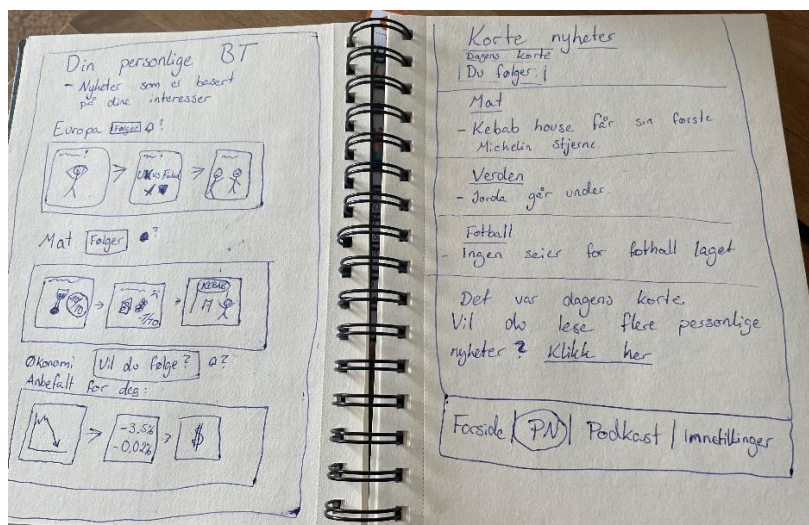 Din personlige BT
- Nyheter som er basert
på dine interesser
Europa Følger ?
Mat Følger ?
10/10
-7/10
KEBAB
Økonomi Vil du følge? ?
Anbefalt for deg:
-3,5%
-0,02%
$
Korte nyheter
Dagens korte
Du følger:
Mat
- Kebab house får sin første
Michelin stjerne.
Verden
- Jorda går under.
Fotball
- Ingen seier for fotball laget
Det var dagens korte
Vil du lese flere personlige
nyheter? Klikk her
Forside | PN | Podkast | Innstillinger